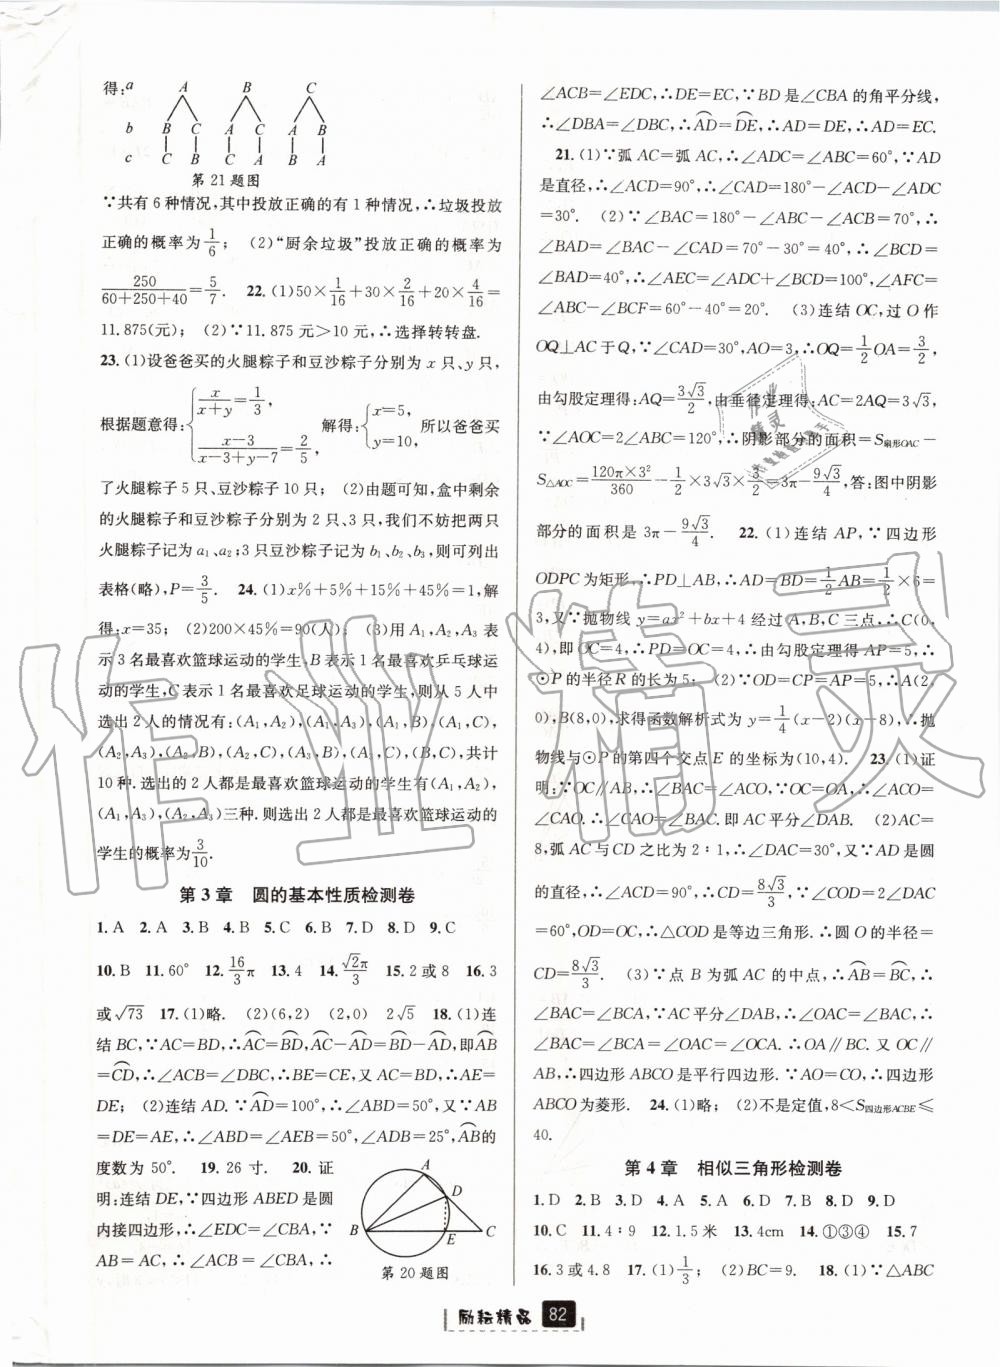 得:a A B C
b B C A C A B
c C B C A B A
第21题图
∵共有6种情况,其中投放正确的有1种情况,∴垃圾投放
正确的概率为1/6; (2)“厨余垃圾”投放正确的概率为
250/(60+250+40)=5/7. 22.(1)50×1/16+30×2/16+20×4/16=
11.875(元); (2)∵11.875元>10元,∴选择转转盘.
23.(1)设爸爸买的火腿粽子和豆沙粽子分别为x只、y只,
根据题意得:{x/(x+y)=1/3, (x-3)/(x-3+y-7)=2/5 解得:{x=5, y=10, 所以爸爸买
了火腿粽子5只、豆沙粽子10只; (2)由题可知,盒中剩余
的火腿粽子和豆沙粽子分别为2只、3只,我们不妨把两只
火腿粽子记为a₁、a₂;3只豆沙粽子记为b₁、b₂、b₃,则可列出
表格(略),P=3/5. 24.(1)x%+5%+15%+45%=1,解
得:x=35; (2)200×45%=90(人); (3)用A₁,A₂,A₃表
示3名最喜欢篮球运动的学生,B表示1名最喜欢乒乓球运
动的学生,C表示1名最喜欢足球运动的学生,则从5人中
选出2人的情况有:(A₁,A₂),(A₁,A₃),(A₁,B),(A₁,C),
(A₂,A₃),(A₂,B),(A₂,C),(A₃,B),(A₃,C),(B,C),共计
10种.选出的2人都是最喜欢篮球运动的学生有(A₁,A₂),
(A₁,A₃),(A₂,A₃)三种.则选出2人都是最喜欢篮球运动的
学生的概率为3/10.
第3章 圆的基本性质检测卷
1.A 2.A 3.B 4.B 5.C 6.B 7.D 8.D 9.C
10.B 11.60° 12.16/3π 13.4 14.√2π/3 15.2或8 16.3
或√73 17.(1)略. (2)(6,2) (2,0) 2√5 18.(1)连
结BC,∵AC=BD,∴⌒AC=⌒BD,⌒AC-⌒AD=⌒BD-⌒AD,即⌒AB
=⌒CD,∴∠ACB=∠DBC,∴BE=CE,又AC=BD,∴AE=
DE; (2)连结AD.∵⌒AD=100°,∴∠ABD=50°,又∵AB
=DE=AE,∴∠ABD=∠AEB=50°,∠ADB=25°,⌒AB的
度数为50°. 19.26寸. 20.证
明:连结DE,∵四边形ABED是圆
内接四边形,∴∠EDC=∠CBA,∵
AB=AC,∴∠ACB=∠CBA,∴
A
D
B E C
第20题图
∠ACB=∠EDC,∴DE=EC,∵BD是∠CBA的角平分线,
∴∠DBA=∠DBC,∴⌒AD=⌒DE,∴AD=DE,∴AD=EC.
21.(1)∵弧AC=弧AC,∴∠ADC=∠ABC=60°,∵AD
是直径,∴∠ACD=90°,∴∠CAD=180°-∠ACD-∠ADC
=30°. (2)∵∠BAC=180°-∠ABC-∠ACB=70°,∴
∠BAD=∠BAC-∠CAD=70°-30°=40°,∴∠BCD=
∠BAD=40°,∴∠AEC=∠ADC+∠BCD=100°,∠AFC=
∠ABC-∠BCF=60°-40°=20°. (3)连结OC,过O作
OQ⊥AC于Q,∵∠CAD=30°,AO=3,∴OQ=1/2OA=3/2,
由勾股定理得:AQ=3√3/2,由垂径定理得:AC=2AQ=3√3,
∵∠AOC=2∠ABC=120°,∴阴影部分的面积=S扇形OAC-
S△AOC=120π×3²/360-1/2×3√3×3/2=3π-9√3/4,答:图中阴影
部分的面积是3π-9√3/4. 22.(1)连结AP,∵四边形
ODPC为矩形,∴PD⊥AB,∴AD=BD=1/2AB=1/2×6=
3,又∵抛物线y=ax²+bx+4经过A,B,C三点,∴C(0,
4),即OC=4,∴PD=OC=4,∴由勾股定理得AP=5,∴
⊙P的半径R的长为5; (2)∵OD=CP=AP=5,∴A(2,
0),B(8,0),求得函数解析式为y=1/4(x-2)(x-8),∴抛
物线与⊙P的第四个交点E的坐标为(10,4). 23.(1)证
明:∵OC∥AB,∴∠BAC=∠ACO,∵OC=OA,∴∠ACO=
∠CAO,∴∠CAO=∠BAC.即AC平分∠DAB. (2)AC=
8,弧AC与CD之比为2∶1,∴∠DAC=30°.又∵AD是圆
的直径,∴∠ACD=90°,∴CD=8√3/3,∵∠COD=2∠DAC
=60°,OD=OC,∴△COD是等边三角形.∴圆O的半径=
CD=8√3/3. (3)∵点B为弧AC的中点,∴⌒AB=⌒BC,∴
∠BAC=∠BCA,∵AC平分∠DAB,∴∠OAC=∠BAC,∴
∠BCA=∠OAC=∠OCA.∴OA∥BC.又OC∥
AB,∴四边形ABCO是平行四边形.∵AO=CO,∴四边形
ABCO为菱形. 24.(1)略; (2)不是定值,8<S四边形ACBE≤
40.
第4章 相似三角形检测卷
1.D 2.B 3.B 4.A 5.A 6.D 7.D 8.D 9.D
10.C 11.4∶9 12.1.5米 13.4cm 14.①③④ 15.7
16.3或4.8 17.(1)1/3; (2)BC=9. 18.(1)∵△ABC
励耘精品 82
作业精灵